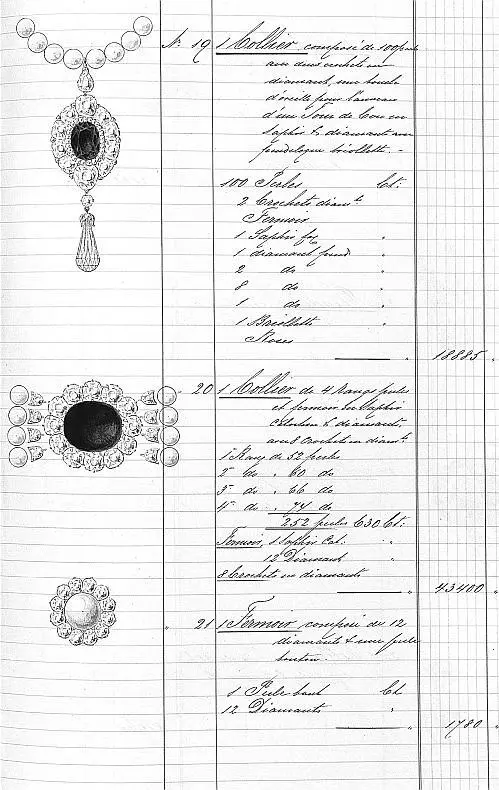 No. 19 1 Collier composé de 100 perles
avec deux crochets en
diamant, une boucle
d'oreille pour l'anneau
d'un Tour de Cou en
Saphir & diamant avec
pendeloque briollette. -
100 Perles Ct:
2 Crochets diamts
Fermoir
1 Saphir "
1 diamant fond "
2 do "
8 do "
1 do "
1 Briollette "
Roses
" 18885 "
" 20 1 Collier de 4 Rangs perles
et fermoir en Saphir
& diamants,
avec 8 Crochets en diamts.
1 Rang de 52 perles
2e do " 60 do
3e do " 66 do
4e do " 74 do
252 perles 630 Ct:
Fermoir, 1 Saphir Cal. "
12 Diamant "
8 Crochets en diamants
" 43400 "
" 21 1 Fermoir composé de 12
diamants & une perle
bouton.
1 Perle bout Ct
12 Diamants "
" 1780 "